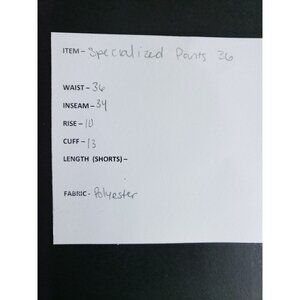 ITEM – Specialized Pants 36
WAIST – 36
INSEAM – 34
RISE – 10
CUFF – 13
LENGTH (SHORTS) –
FABRIC - Polyester